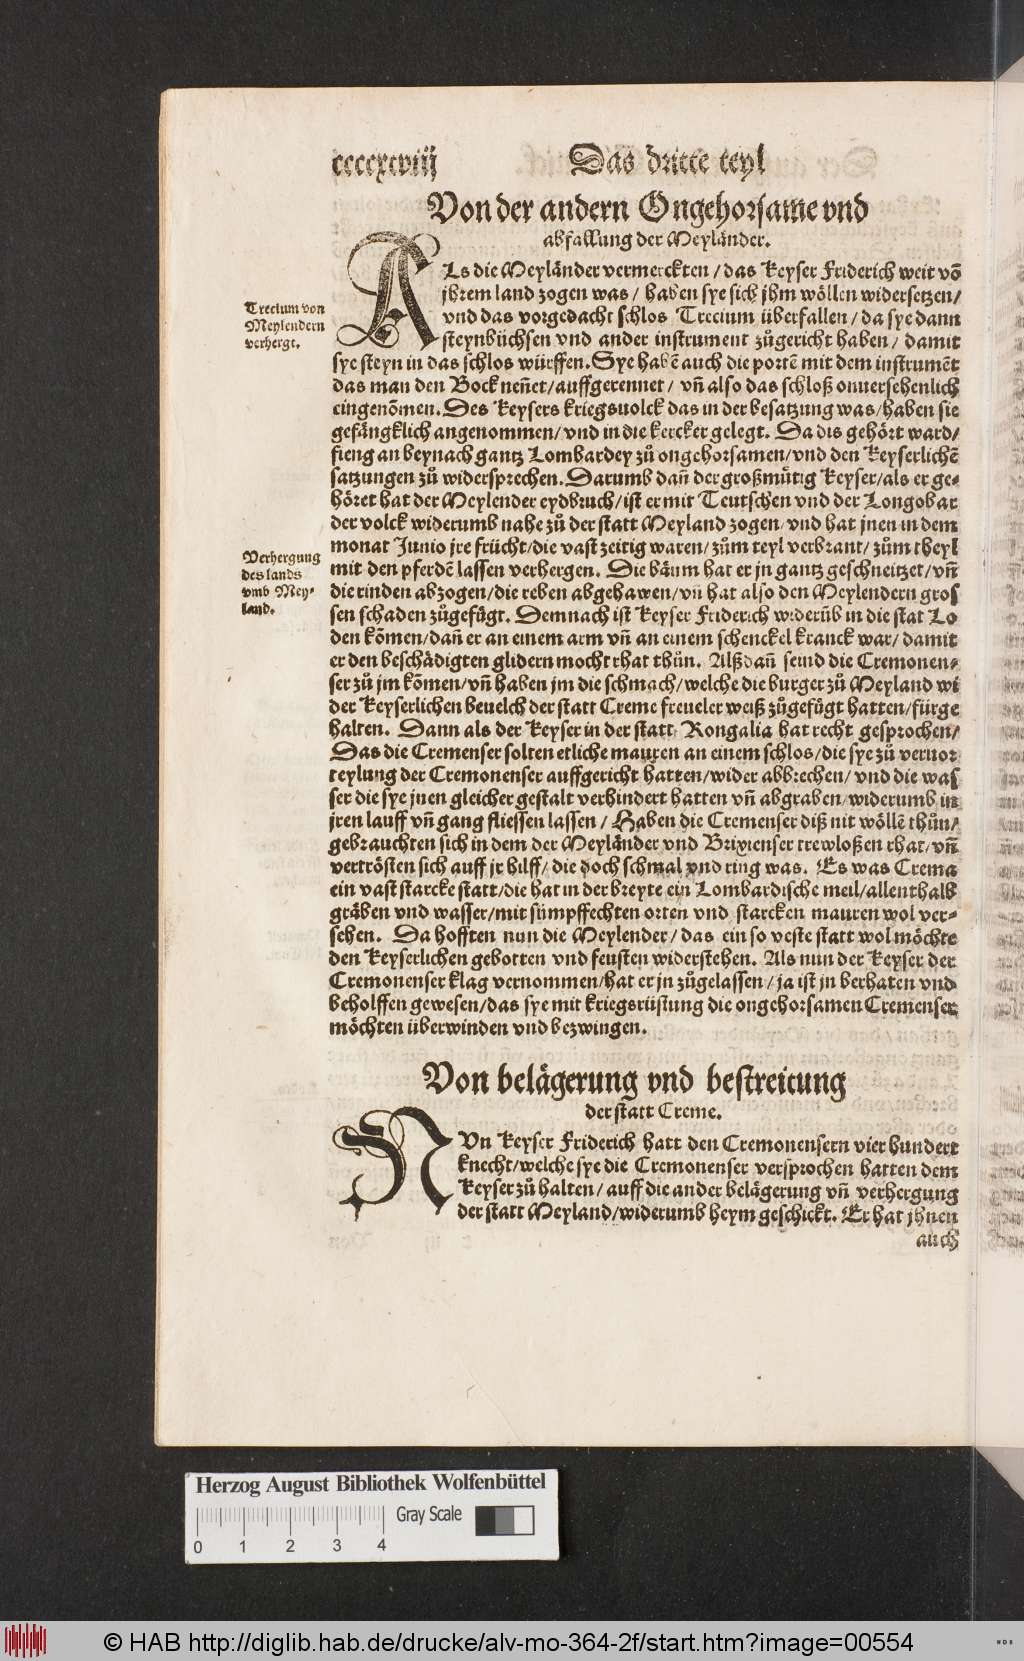 ccccxcviij
Das dritte teyl
Von der andern Ongehorsame vnd
abfallung der Meyländer.
ALs die Meyländer vermerckten / das Keyser Friderich weit võ
jhrem land zogen was / haben sye sich jhm wöllen widersetzen /
vnd das vorgedacht schlos Trecium überfallen / da sye dann
steynbüchsen vnd ander instrument zůgericht haben / damit
sye steyn in das schlos würffen. Sye habẽ auch die portẽ mit dem instrumẽt
das man den Bock neñet / auffgerennet / vñ also das schloß onuersehenlich
eingenõmen. Des Keysers kriegsuolck das in der besatzung was / haben sie
gefängklich angenommen / vnd in die kercker gelegt. Da dis gehört ward /
fieng an beynach gantz Lombardey zů ongehorsamen / vnd den Keyserlichẽ
satzungen zů widersprechen. Darumb dañ der großmůtig Keyser / als er ge-
höret hat der Meylender eydbruch / ist er mit Teutschen vnd der Longobar
der volck widerumb nahe zů der statt Meyland zogen / vnd hat jnen in dem
monat Junio jre frücht / die vast zeitig waren / zům teyl verbrant / zům theyl
mit den pferdẽ lassen verhergen. Die bäum hat er jn gantz geschneitzet / vñ
die rinden abzogen / die reben abgehawen / vñ hat also den Meylendern gros
sen schaden zůgefügt. Demnach ist Keyser Friderich widerüb in die stat Lo
den kõmen / dañ er an einem arm vñ an einem schenckel kranck war / damit
er den beschädigten glidern mocht rhat thůn. Alßdañ seind die Cremonen-
ser zů jm kõmen / vñ haben jm die schmach / welche die burger zů Meyland wi
der Keyserlichen beuelch der statt Creme freueler weiß zůgefügt hatten / fürge
halten. Dann als der Keyser in der statt Rongalia hat recht gesprochen /
Das die Cremenser solten etliche mauren an einem schlos / die sye zů veruor
teylung der Cremonenser auffgericht hatten / wider abbrechen / vnd die was
ser die sye jnen gleicher gestalt verhindert hatten vñ abgraben / widerumb in
jren lauff vñ gang fliessen lassen / Haben die Cremenser diß nit wöllẽ thůn /
gebrauchten sich in dem der Meyländer vnd Brixienser trewloßen rhat / vñ
vertrösten sich auff jr hilff / die doch schmal vnd ring was. Es was Crema
ein vast starcke statt / die hat in der breyte ein Lombardische meil / allenthalb
gräben vnd wasser / mit sümpffechten orten vnd starcken mauren wol ver-
sehen. Da hofften nun die Meylender / das ein so veste statt wol möchte
den Keyserlichen gebotten vnd feusten widerstehen. Als nun der Keyser der
Cremonenser klag vernommen / hat er jn zůgelassen / ja ist jn berhaten vnd
beholffen gewesen / das sye mit kriegsrüstung die ongehorsamen Cremenser
möchten überwinden vnd bezwingen.
Trecium von
Meylendern
verhergt.
Verhergung
des lands
vmb Mey-
land.
Von belägerung vnd bestreitung
der statt Creme.
NVn Keyser Friderich hatt den Cremonensern vier hundert
knecht / welche sye die Cremonenser versprochen hatten dem
Keyser zů halten / auff die ander belägerung vñ verhergung
der statt Meyland / widerumb heym geschickt. Er hat jhnen
auch
Herzog August Bibliothek Wolfenbüttel
Gray Scale
0 1 2 3 4
© HAB http://diglib.hab.de/drucke/alv-mo-364-2f/start.htm?image=00554